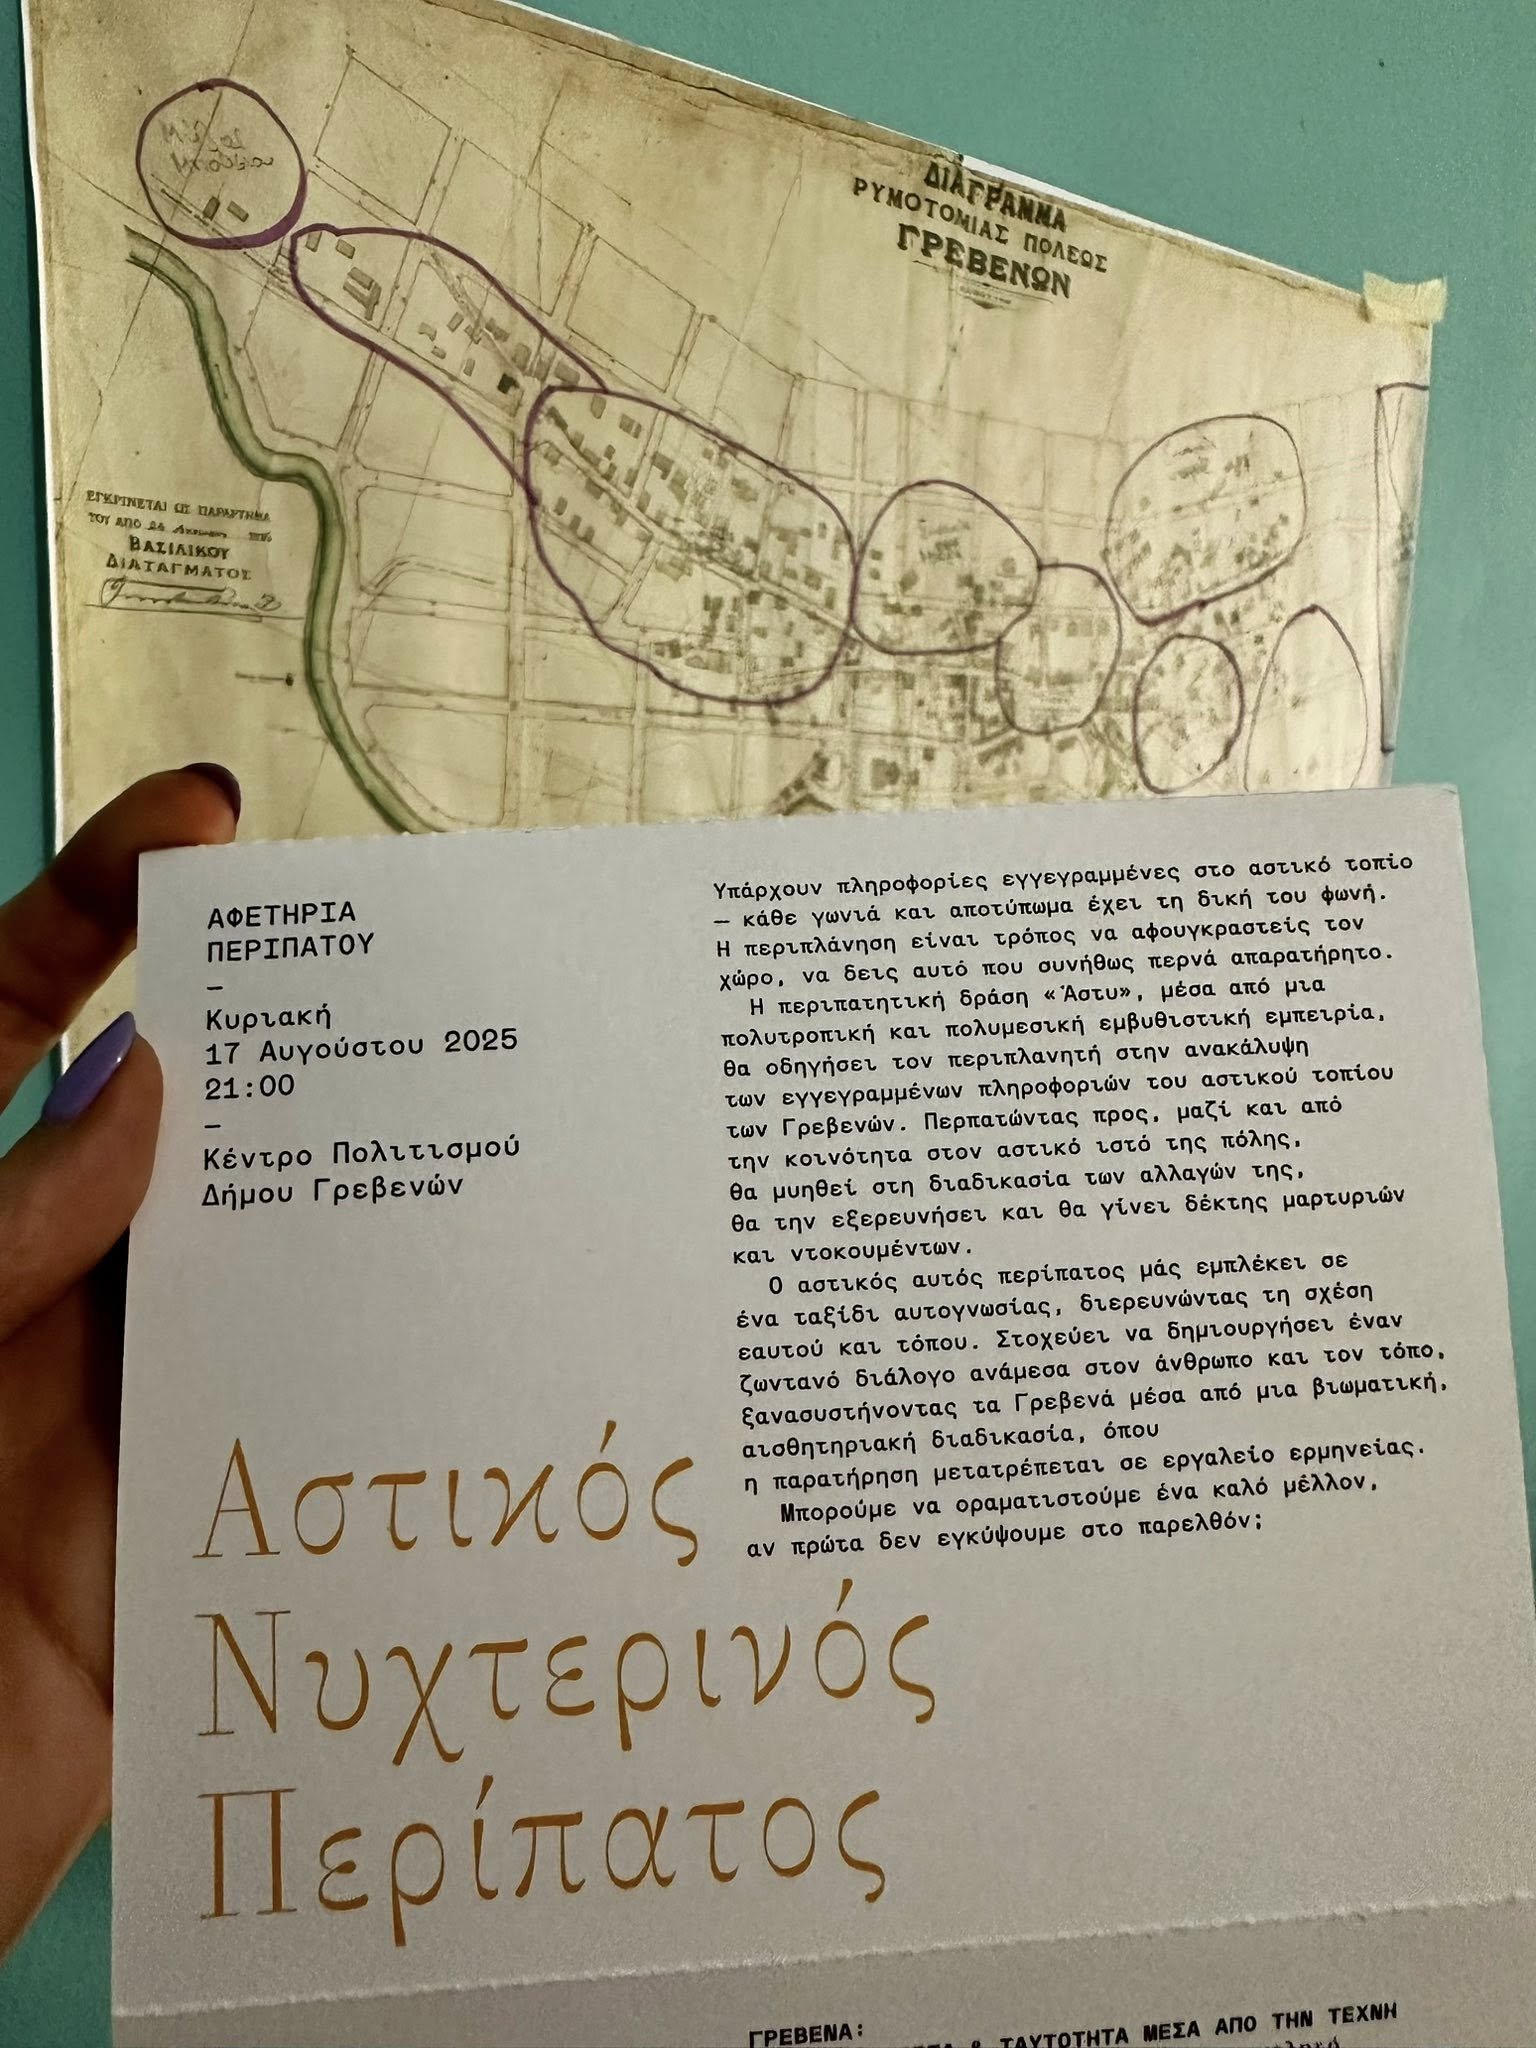 ΔΙΑΓΡΑΜΜΑ
ΡΥΜΟΤΟΜΙΑΣ ΠΟΛΕΩΣ
ΓΡΕΒΕΝΩΝ
ΕΓΚΡΙΝΕΤΑΙ ΩΣ ΠΑΡΑΡΤΗΜΑ
ΤΟΥ ΑΠΟ 24
ΒΑΣΙΛΙΚΟΥ
ΔΙΑΤΑΓΜΑΤΟΣ
ΑΦΕΤΗΡΙΑ
ΠΕΡΙΠΑΤΟΥ
—
Κυριακή
17 Αυγούστου 2025
21:00
—
Κέντρο Πολιτισμού
Δήμου Γρεβενών
Υπάρχουν πληροφορίες εγγεγραμμένες στο αστικό τοπίο
— κάθε γωνιά και αποτύπωμα έχει τη δική του φωνή.
Η περιπλάνηση είναι τρόπος να αφουγκραστείς τον
χώρο, να δεις αυτό που συνήθως περνά απαρατήρητο.
Η περιπατητική δράση «Άστυ», μέσα από μια
πολυτροπική και πολυμεσική εμβυθιστική εμπειρία,
θα οδηγήσει τον περιπλανητή στην ανακάλυψη
των εγγεγραμμένων πληροφοριών του αστικού τοπίου
των Γρεβενών. Περπατώντας προς, μαζί και από
την κοινότητα στον αστικό ιστό της πόλης,
θα μυηθεί στη διαδικασία των αλλαγών της,
θα την εξερευνήσει και θα γίνει δέκτης μαρτυριών
και ντοκουμέντων.
Ο αστικός αυτός περίπατος μάς εμπλέκει σε
ένα ταξίδι αυτογνωσίας, διερευνώντας τη σχέση
εαυτού και τόπου. Στοχεύει να δημιουργήσει έναν
ζωντανό διάλογο ανάμεσα στον άνθρωπο και τον τόπο,
ξανασυστήνοντας τα Γρεβενά μέσα από μια βιωματική,
αισθητηριακή διαδικασία, όπου
η παρατήρηση μετατρέπεται σε εργαλείο ερμηνείας.
Μπορούμε να οραματιστούμε ένα καλό μέλλον,
αν πρώτα δεν εγκύψουμε στο παρελθόν;
Αστικός
Νυχτερινός
Περίπατος
ΓΡΕΒΕΝΑ:
& ΤΑΥΤΟΤΗΤΑ ΜΕΣΑ ΑΠΟ ΤΗΝ ΤΕΧΝΗ